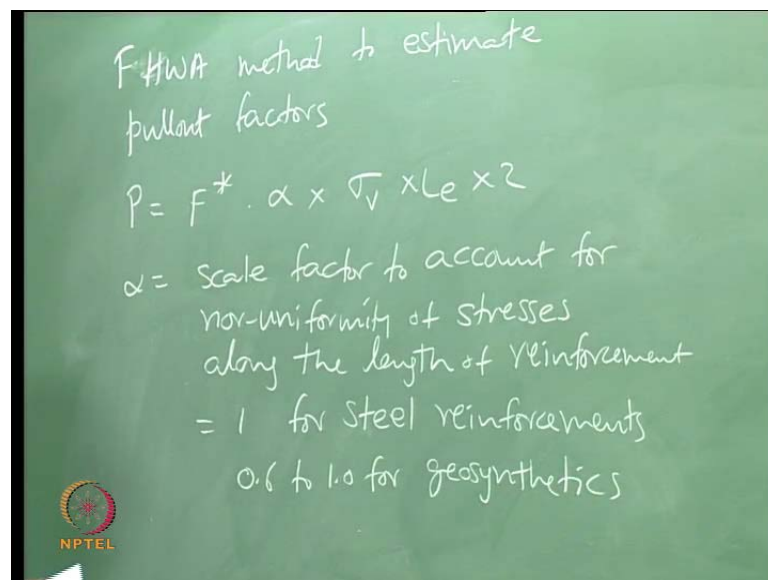 FHWA method to estimate
pullout factors
P = F* . α × σv × Le × 2
α = scale factor to account for
non-uniformity of stresses
along the length of reinforcement
= 1 for steel reinforcements
0.6 to 1.0 for geosynthetics
NPTEL